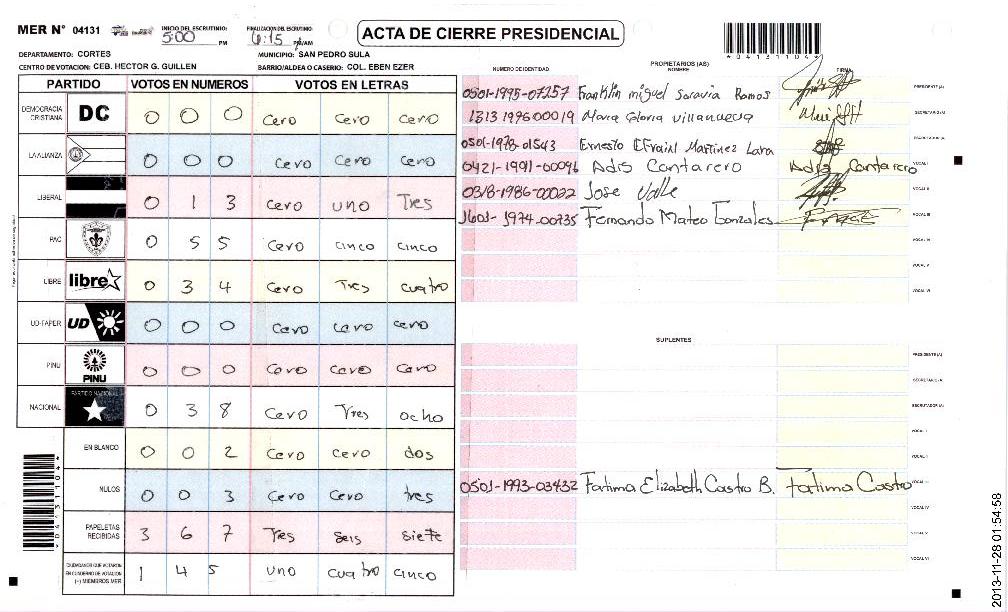 MER N° 04131
INICIO DEL ESCRUTINIO: 5:00 PM
FINALIZACION DEL ESCRUTINIO: 6:15 PM/AM
ACTA DE CIERRE PRESIDENCIAL
*04131104*
DEPARTAMENTO: CORTES
MUNICIPIO: SAN PEDRO SULA
CENTRO DE VOTACION: CEB. HECTOR G. GUILLEN
BARRIO/ALDEA O CASERIO: COL. EBEN EZER
PARTIDO VOTOS EN NUMEROS VOTOS EN LETRAS
DEMOCRACIA CRISTIANA DC 0 0 0 Cero Cero Cero
LA ALIANZA 0 0 0 Cero Cero Cero
LIBERAL 0 1 3 Cero uno Tres
PAC 0 5 5 Cero cinco cinco
LIBRE libre 0 3 4 Cero Tres cuatro
UD-FAPER UD 0 0 0 Cero Cero Cero
PINU PINU 0 0 0 Cero Cero Cero
NACIONAL PARTIDO NACIONAL 0 3 8 Cero Tres ocho
EN BLANCO 0 0 2 Cero Cero dos
NULOS 0 0 3 Cero Cero tres
PAPELETAS RECIBIDAS 3 6 7 Tres seis siete
CIUDADANOS QUE VOTARON EN CUADERNO DE VOTACION (+) MIEMBROS MER 1 4 5 uno cuatro cinco
*04131104*
PROPIETARIOS (AS)
NUMERO DE IDENTIDAD NOMBRE FIRMA
0501-1995-07257 Franklin miguel Saravia Ramos PRESIDENTE (A)
1313 1976 00019 Maria Gloria villanueva SECRETARIO (A)
0501-1978-01543 Ernesto Efraial Martinez Lara
0421-1991-00096 Adis Cantarero Adis Cantarero VOCAL I
0318-1986-00022 Jose Valle VOCAL II
1601-1974-00735 Fernando Mateo Gonzales VOCAL III
VOCAL IV
VOCAL V
VOCAL VI
SUPLENTES
PRESIDENTE (A)
SECRETARIO (A)
ESCRUTADOR (A)
VOCAL I
VOCAL II
0501-1993-03432 Fatima Elizabeth Castro B. Fatima Castro VOCAL III
VOCAL IV
VOCAL V
VOCAL VI
2013-11-28 01:54:58